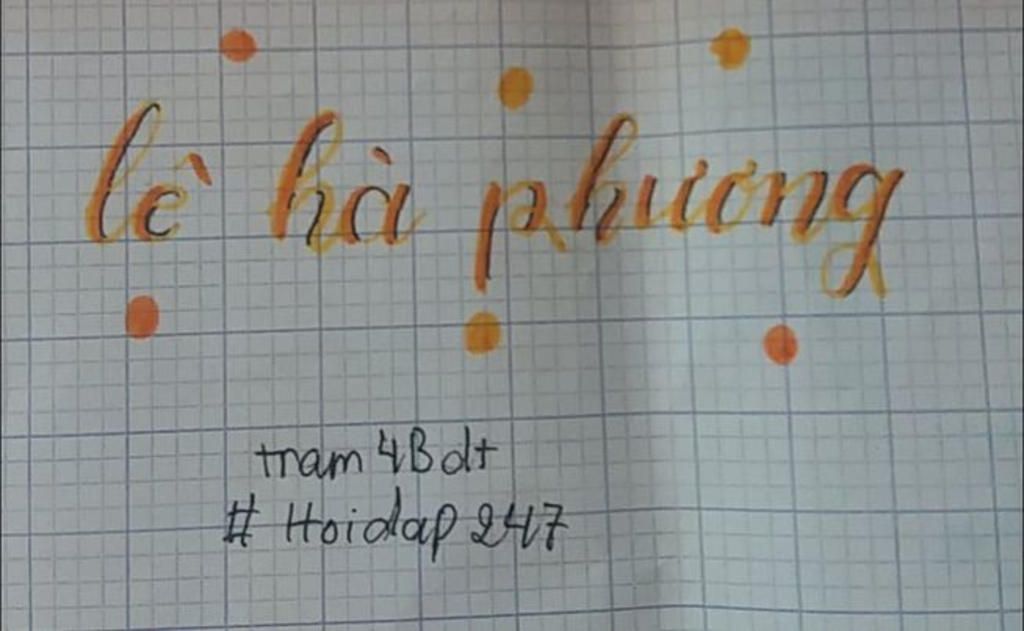 lê hà phương
tram 4B dt
# Hoidap 247